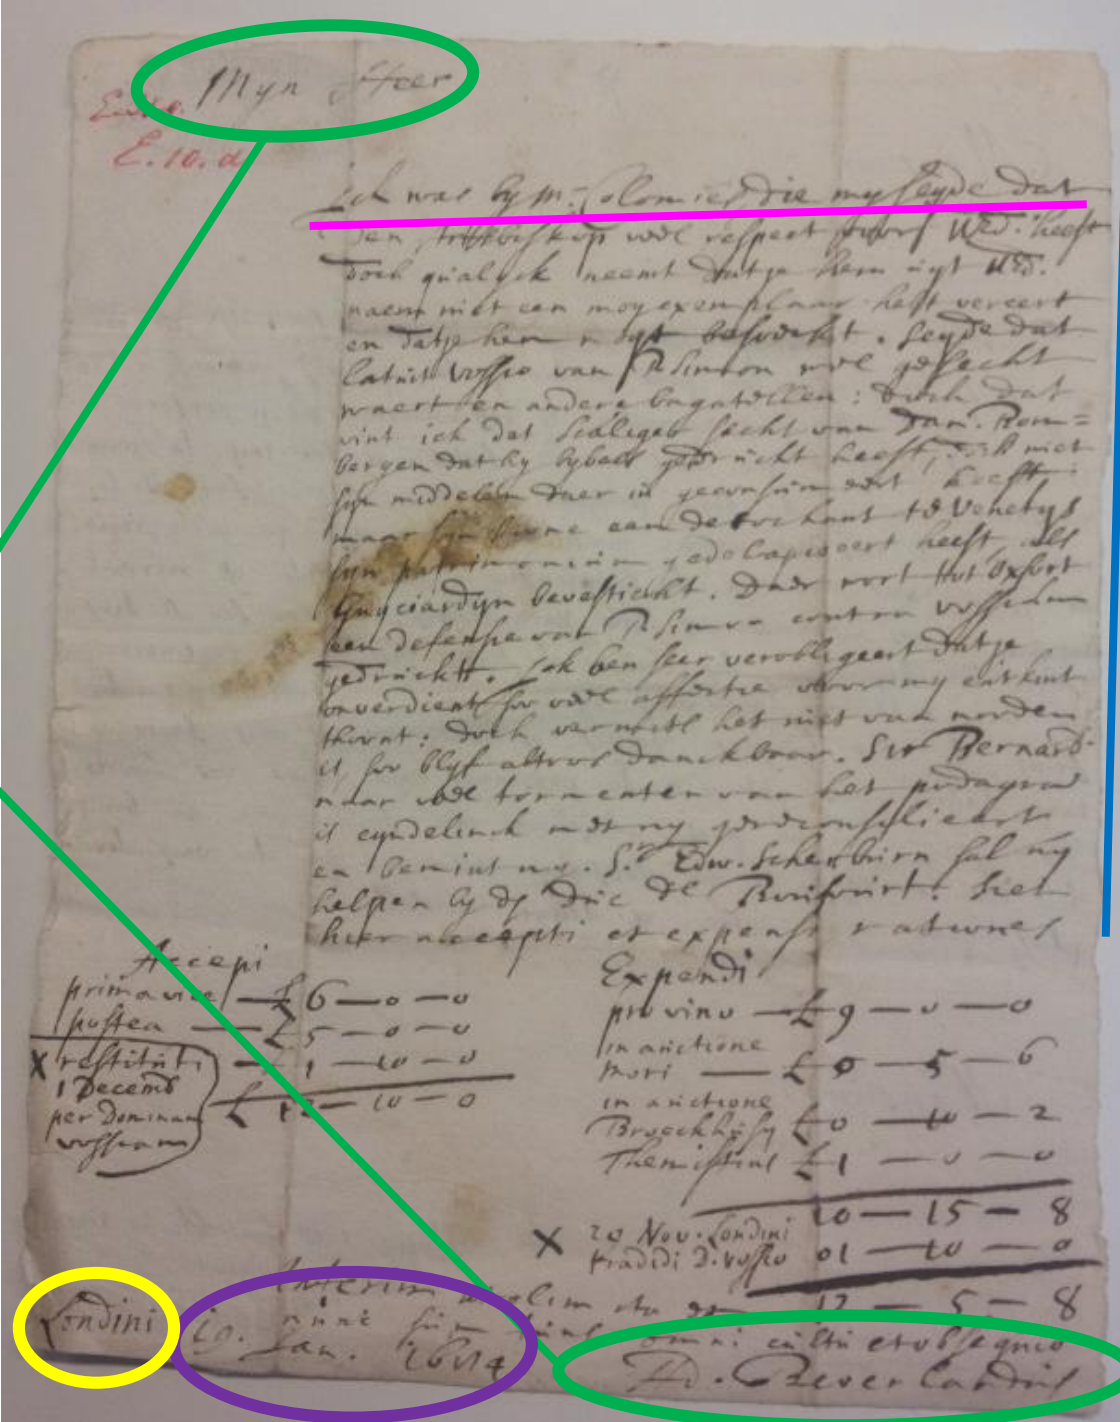 Myn Heer
E. 10. d
Ick was by Mr. Colomies die my seyde dat
den veel respect voor UEd. heeft
doch qualyck neemt datje hem uyt UEd.
naem niet een moy exemplaar heft vereert
en datje hem niet besoeckt. Seyde dat
latuit Vossio van P. Simon wel gesecht
waert en andere bagatellen: doch dat
vint ich dat Scaliger secht van Dan. Bom=
bergen dat hy bybels gedruckt heeft, doch niet
syn middelen daer in geconsumeert heeft
maar syn soone een debochant te Venetys
syn patrimonium gedelapideert heeft, als
Guyciardyn bevesticht. Daer wort tot Oxfort
een defense van P. Simon contra Vossium
gedruckt. Ick ben seer verobligeert datje
onverdient soo veel affectie voor my
thoont: doch vermits het niet van noden
is soo blyf altoos danckbaar. Sir Bernard
naar veel tormenten van het podagra
is eyndelinck met my gereconsilieert
en bemint my. Sr. Edw. Scherburn sal my
helpen by de duc de Siet
hier accepti et expensi rationes
Accepi
prima vice — £ 6 — 0 — 0
postea — £ 5 — 0 — 0
X restituti — £ 1 — 10 — 0
1 Decemb
per Dominum
Vossium
£ 12 — 10 — 0
Expendi
pro vino — £ 9 — 0 — 0
in auctione
Mori — £ 0 — 5 — 6
in auctione
Broeckhusy £ 0 — 10 — 2
Themistius £ 1 — 0 — 0
10 — 15 — 8
X 20 Nov. Londini
tradidi D. Vossio 01 — 10 — 0
12 — 5 — 8
Interim
nunc sum omni cultu et obsequio
Londini 10. Jan. D. Beverlandus